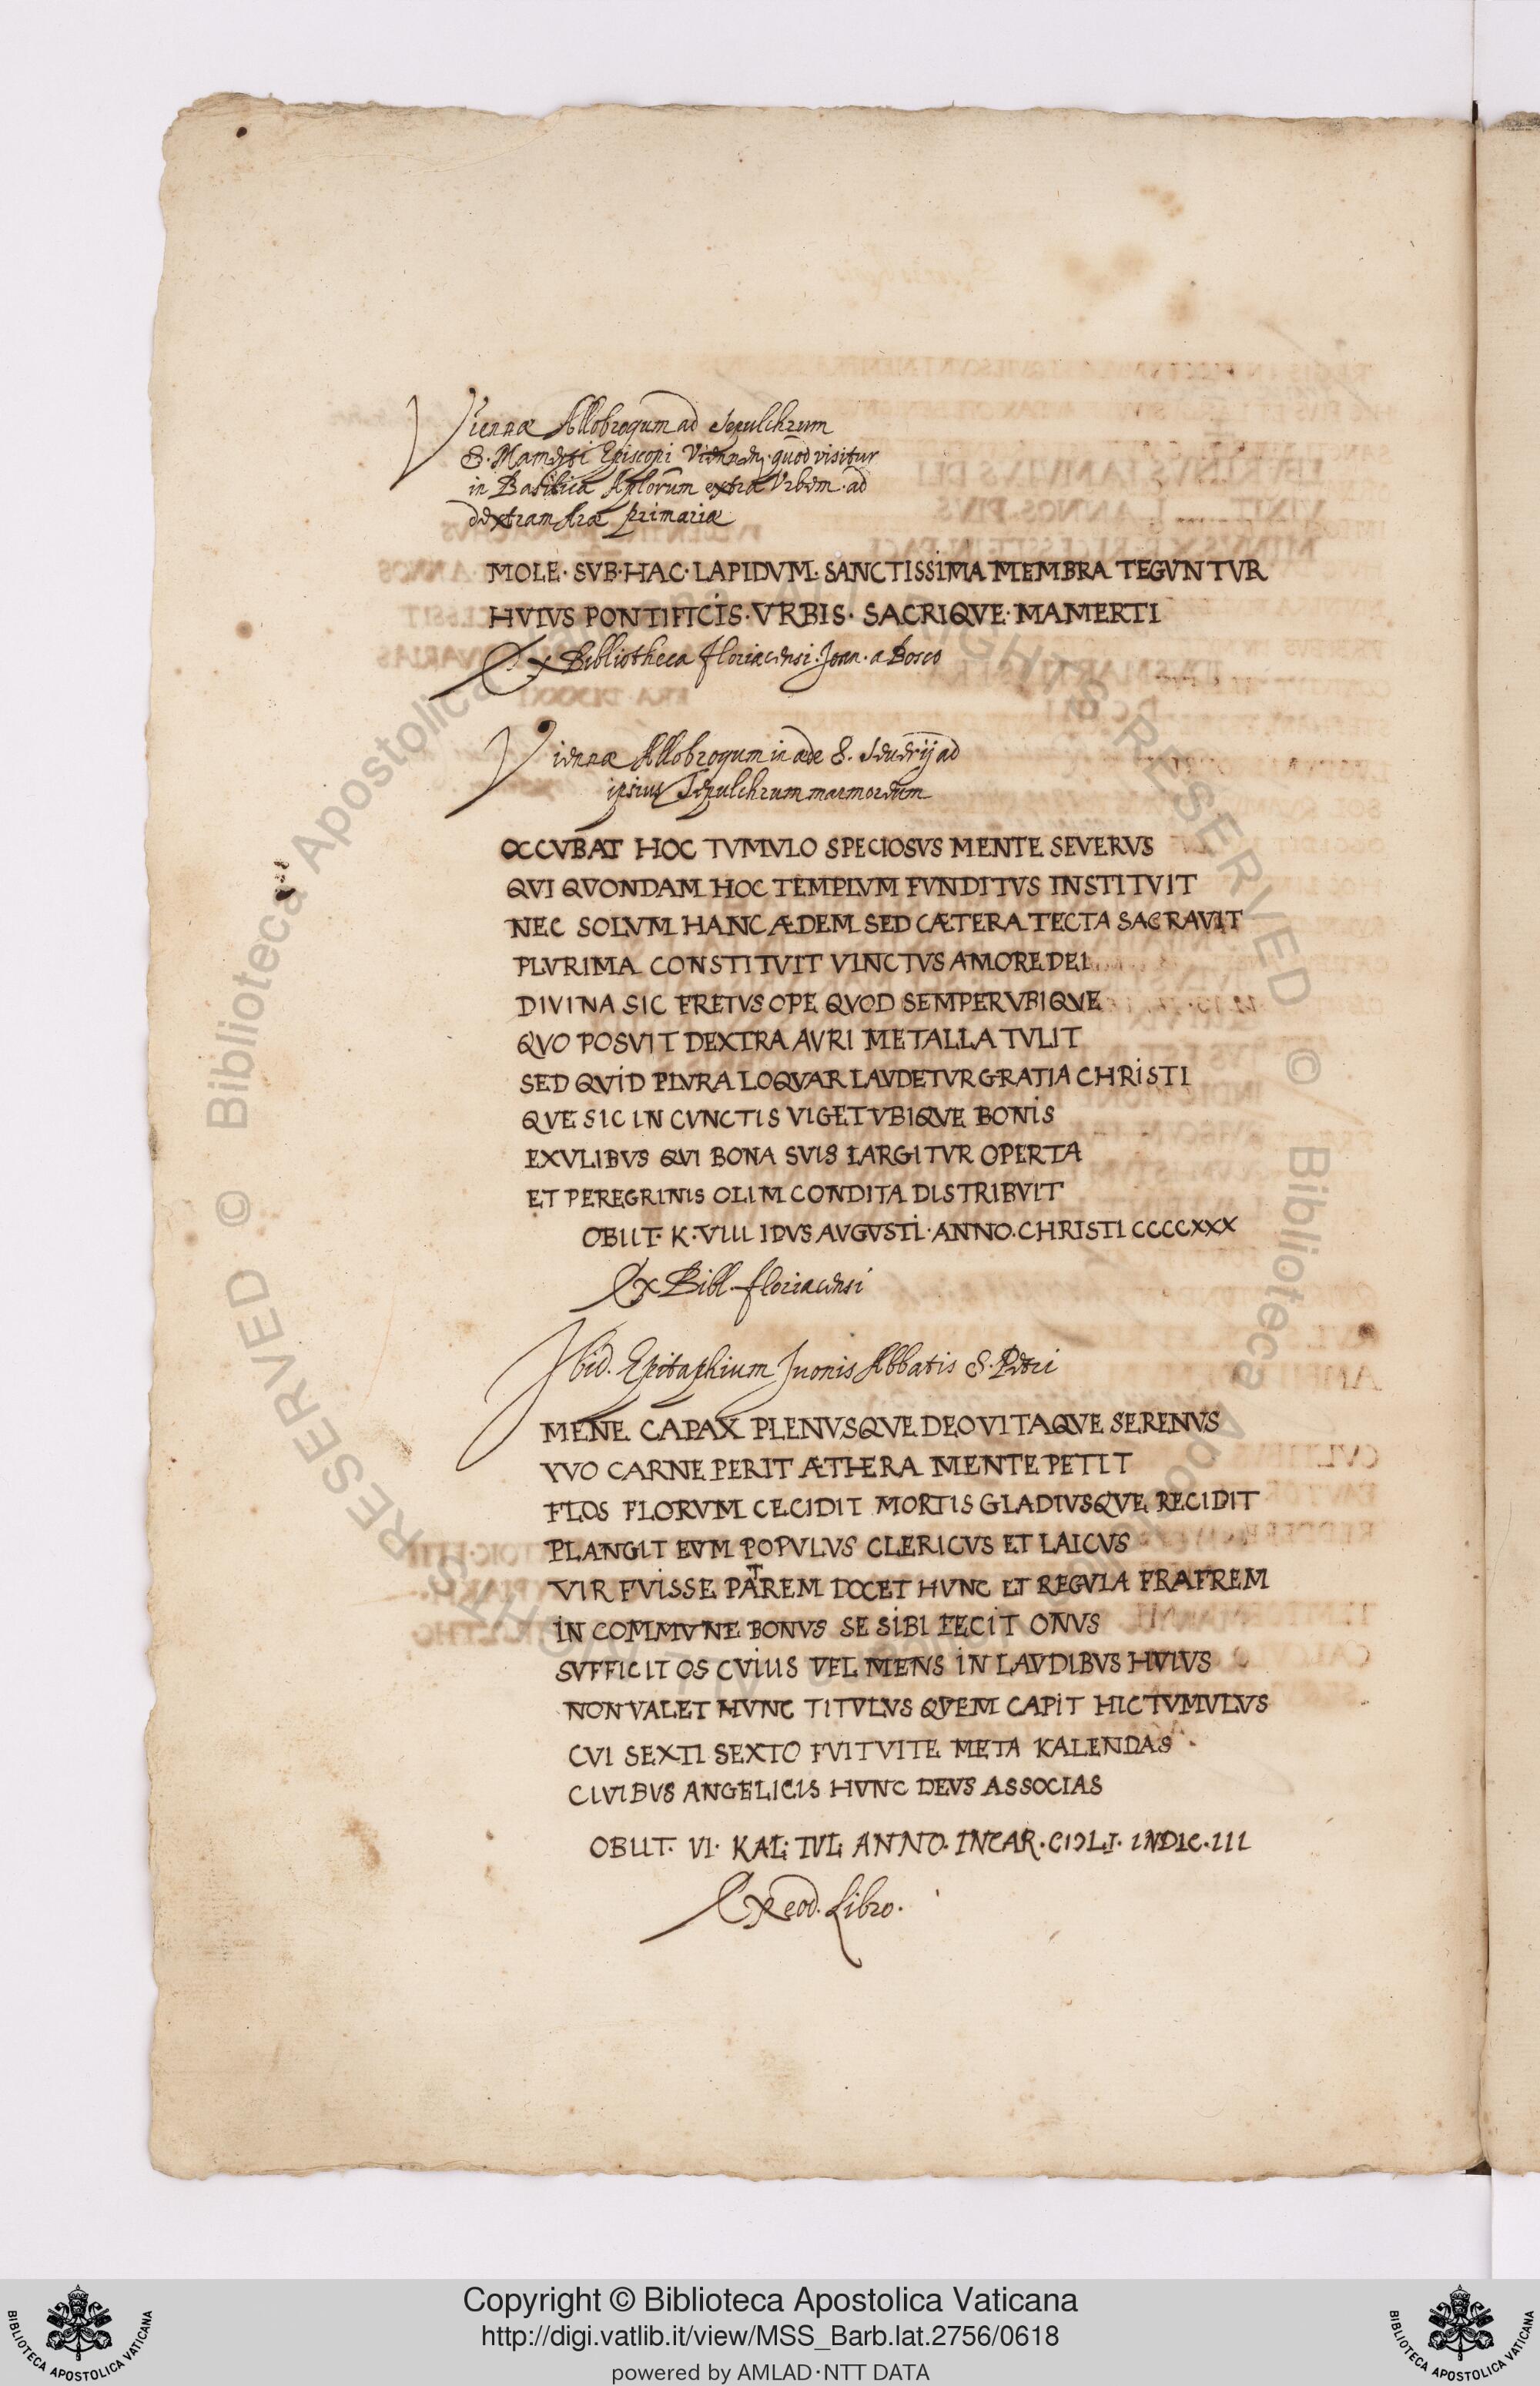 Viennæ Allobrogum ad Sepulchrum
S. Mamerti Episcopi Viennen. quod visitur
in Basilica Aplorum extra Vrbem ad
dextram Aræ primariæ
MOLE· SVB·HAC·LAPIDVM· SANCTISSIMA MEMBRA TEGVNTVR
HVIVS PONTIFICIS·VRBIS· SACRIQVE·MAMERTI
Ex Bibliotheca floriacensi. Joan. a Bosco
Viennæ Allobrogum in æde S. Seuerij ad
ipsius Sepulchrum marmoreum
OCCVBAT HOC TVMVLO SPECIOSVS MENTE SEVERVS
QVI QVONDAM HOC TEMPLVM FVNDITVS INSTITVIT
NEC SOLVM HANC ÆDEM SED CÆTERA TECTA SACRAVIT
PLVRIMA CONSTITVIT VINCTVS AMORE DEI
DIVINA SIC FRETVS OPE QVOD SEMPER VBIQVE
QVO POSVIT DEXTRA AVRI METALLA TVLIT
SED QVID PLVRA LOQVAR LAVDETVR GRATIA CHRISTI
QVE SIC IN CVNCTIS VIGET VBIQVE BONIS
EXVLIBVS QVI BONA SVIS LARGITVR OPERTA
ET PEREGRINIS OLIM CONDITA DISTRIBVIT
OBIIT· K·VIII IDVS AVGVSTI·ANNO·CHRISTI CCCCXXX
Ex Bibl. floriacensi
Ibid. Epitaphium Juonis Abbatis S. Petri
MENE CAPAX PLENVSQVE DEO VITAQVE SERENVS
YVO CARNE PERIT ÆTHERA MENTE PETIT
FLOS FLORVM CECIDIT MORTIS GLADIVSQVE RECIDIT
PLANGIT EVM POPVLVS CLERICVS ET LAICVS
VIR FVISSE PATREM DOCET HVNC ET REGVLA FRATREM
IN COMMVNE BONVS SE SIBI FECIT ONVS
SVFFICIT OS CVIIIS VEL MENS IN LAVDIBVS HVIVS
NON VALET HVNC TITVLVS QVEM CAPIT HIC TVMVLVS
CVI SEXTI SEXTO FVIT VITE META KALENDAS
CIVIBVS ANGELICIS HVNC DEVS ASSOCIAS
OBIIT· VI· KAL· IVL· ANNO· INCAR·CIƆLI· INDIC·III
Ex eod. Libro.
Copyright © Biblioteca Apostolica Vaticana
http://digi.vatlib.it/view/MSS_Barb.lat.2756/0618
powered by AMLAD·NTT DATA
BIBLIOTECA APOSTOLICA VATICANA
BIBLIOTECA APOSTOLICA VATICANA